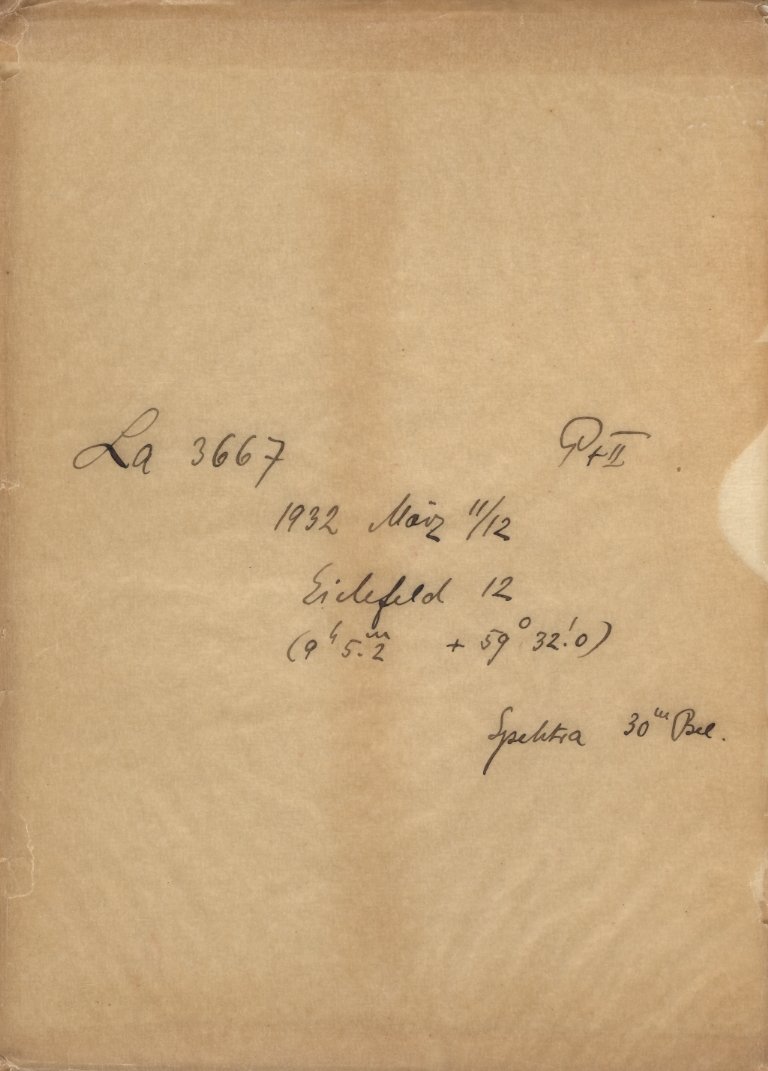 La 3667 P+II
1932 März 11/12
Eichfeld 12
(9ʰ 5.ᵐ2 + 59° 32.'0)
Spektra 30ᵐ Bel.